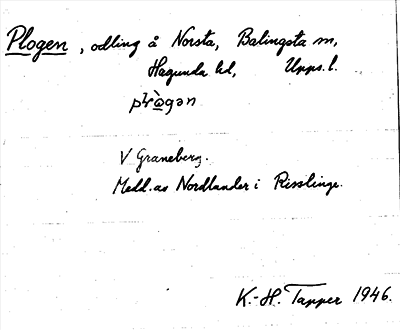 Plogen, odling å Norsta, Balingsta sn,
Hagunda hd, Upps. l.
plògən
V Graneberg.
Medd. av Nordlander i Risslinge.
K.-H. Tapper 1946.